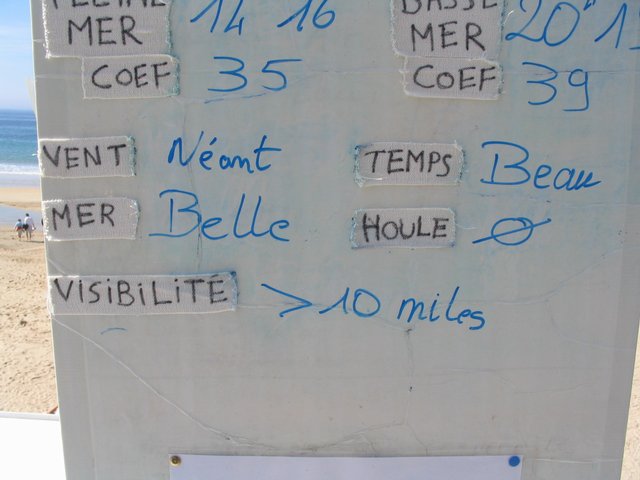 PLEINE MER 14 16 BASSE MER 20H 1
COEF 35 COEF 39
VENT Néant TEMPS Beau
MER Belle HOULE Ø
VISIBILITÉ >10 miles